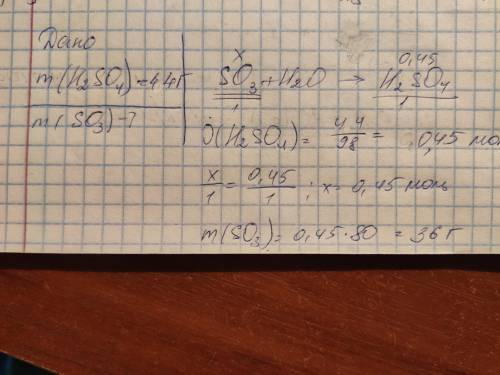 Дано
m(H₂SO₄)=44г
m(SO₃)-?
x 0,45
SO₃+H₂O → H₂SO₄
1 1
Ʋ(H₂SO₄)= 44/98 = 0,45 мол
x/1 = 0,45/1 ; x= 0,45 моль
m(SO₃)= 0,45·80 = 36 г